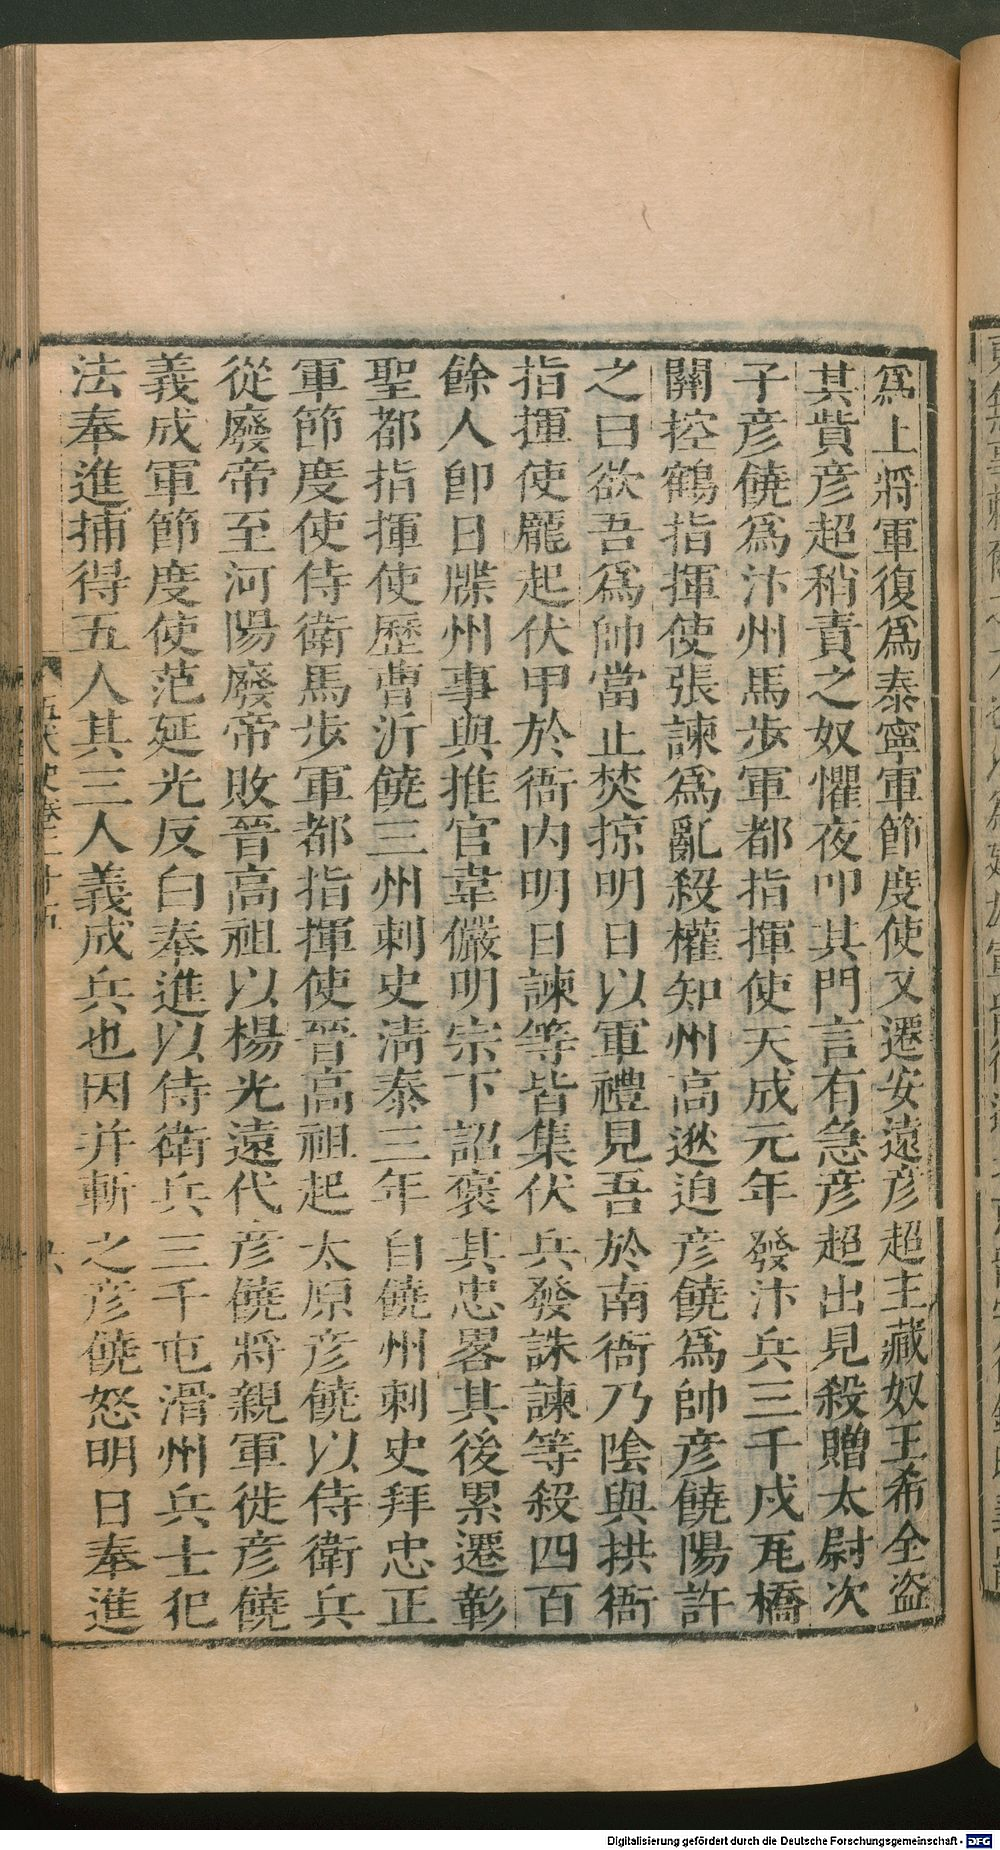 爲上將軍復爲泰寧軍節度使又遷安遠彦超主藏奴王希全盜
其貲彦超稍責之奴懼夜叩其門言有急彦超出見殺贈太尉次
子彦饒爲汴州馬步軍都指揮使天成元年發汴兵三千戍瓦橋
關控鶴指揮使張諫爲亂殺權知州高逖迫彦饒爲帥彦饒陽許
之曰欲吾爲帥當止焚掠明日以軍禮見吾於南衙乃陰與拱衙
指揮使龐起伏甲於衙内明日諫等皆集伏兵發誅諫等殺四百
餘人卽日牒州事與推官韋儼明宗下詔褒其忠畧其後累遷彰
聖都指揮使歷曹沂饒三州刺史淸泰三年自饒州刺史拜忠正
軍節度使侍衛馬步軍都指揮使晉高祖起太原彦饒以侍衛兵
從廢帝至河陽廢帝敗晉高祖以楊光遠代彦饒將親軍徙彦饒
義成軍節度使范延光反白奉進以侍衛兵三千屯滑州兵士犯
法奉進捕得五人其三人義成兵也因并斬之彦饒怒明日奉進
五代史卷二十五
Digitalisierung gefördert durch die Deutsche Forschungsgemeinschaft - DFG